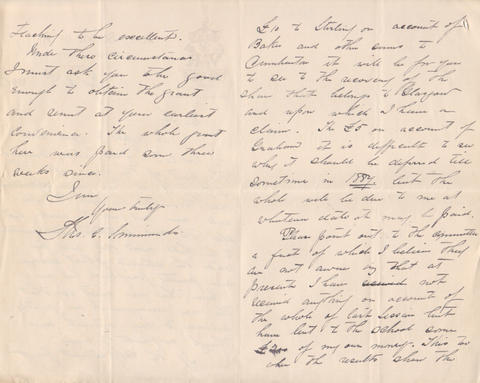 £10 to Stirling on account of
Baker and other sums to
it will be for you
to see to the recovery of the
share that belongs to Glasgow
and upon which I have a
claim. The £5 on account of
Graham it is difficult to see
why it should be deferred till
sometime in 1887, but the
whole will be due to me at
whatever date it may be paid.
Please point out to the Committee
a fact of which I believe they
are not aware of that at
present I have not
received anything on account of
the whole of last Session but
have lent to the school some
of my own money. This too
when the results show the
teaching to be excellent.
Under these circumstances
I must ask you to be good
enough to obtain the grant
and send at your earliest
convenience. The whole grant
here was paid some three
weeks since.
I am
Yours truly